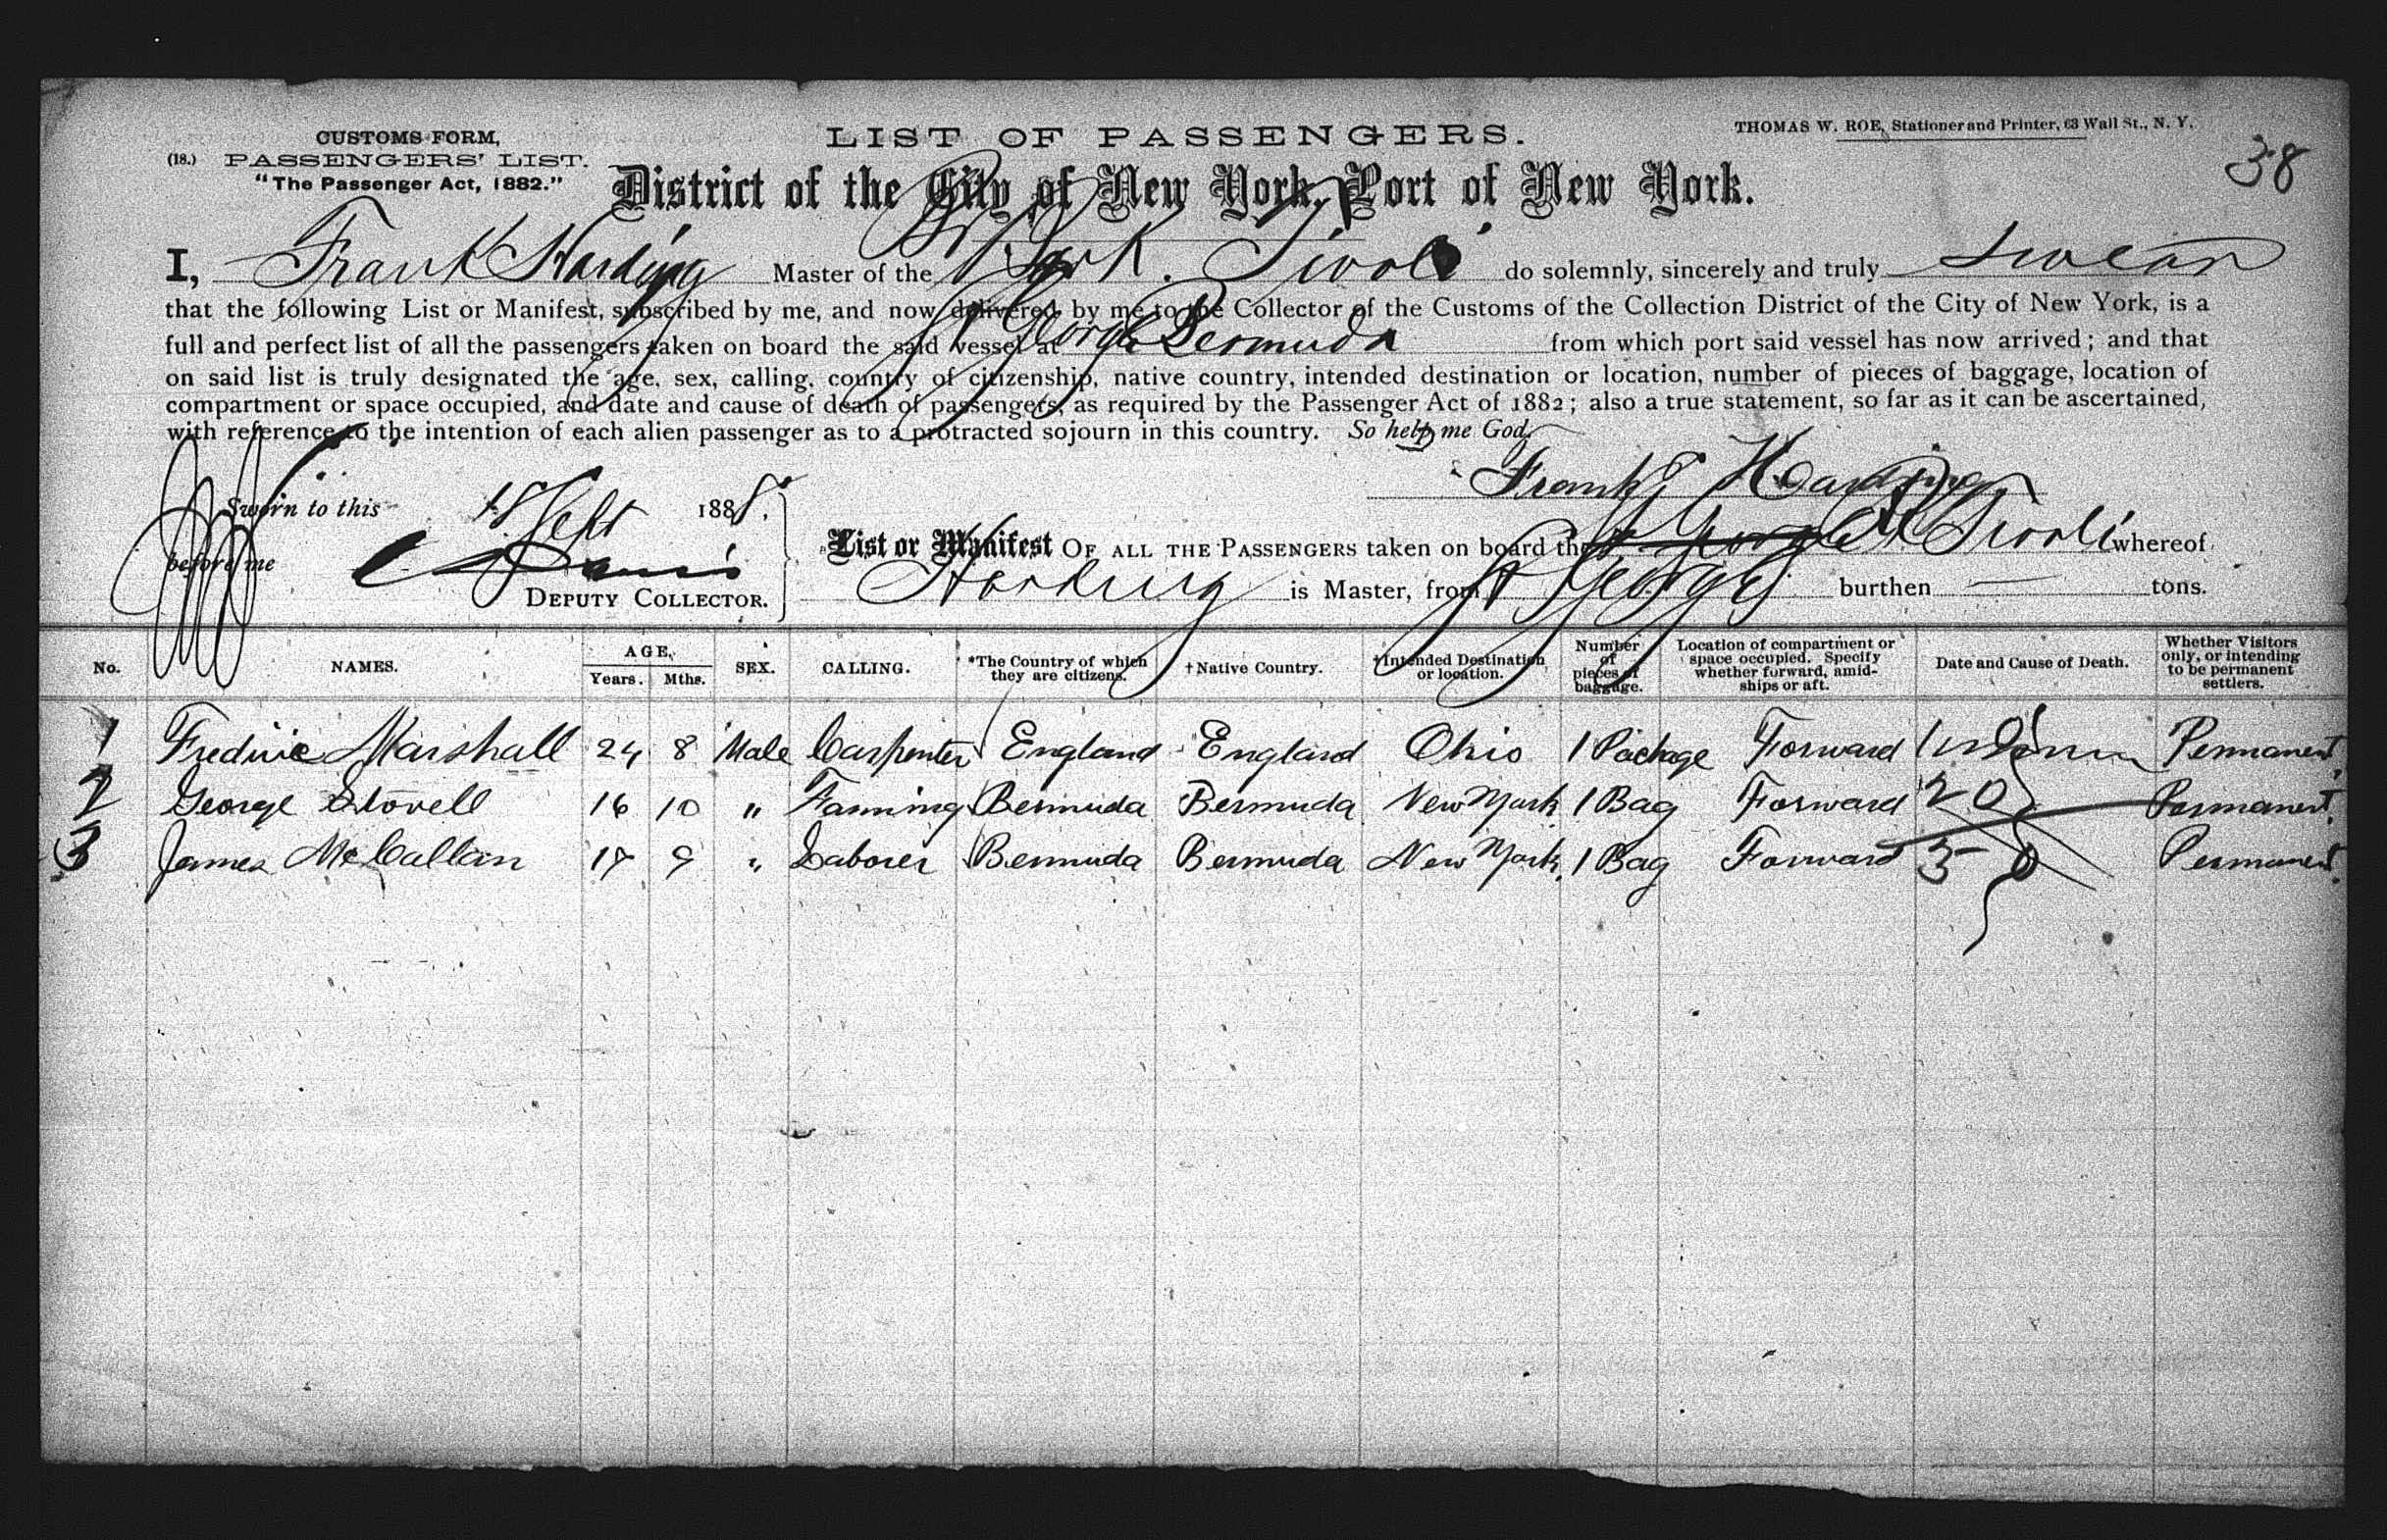 CUSTOMS FORM,
(18.) PASSENGERS' LIST.
"The Passenger Act, 1882."
LIST OF PASSENGERS.
THOMAS W. ROE, Stationer and Printer, 63 Wall St., N. Y.
38
District of the City of New York, Port of New York.
I, Frank Harding Master of the Br Bark. Tivoli do solemnly, sincerely and truly swear
that the following List or Manifest, subscribed by me, and now delivered by me to the Collector of the Customs of the Collection District of the City of New York, is a
full and perfect list of all the passengers taken on board the said vessel at St Georges Bermuda from which port said vessel has now arrived; and that
on said list is truly designated the age, sex, calling, country of citizenship, native country, intended destination or location, number of pieces of baggage, location of
compartment or space occupied, and date and cause of death of passengers, as required by the Passenger Act of 1882; also a true statement, so far as it can be ascertained,
with reference to the intention of each alien passenger as to a protracted sojourn in this country. So help me God.
Frank Harding
Sworn to this 18 Sept 188
before me
DEPUTY COLLECTOR.
List or Manifest OF ALL THE PASSENGERS taken on board the Tivoli whereof
Harding is Master, from St Georges burthen tons.
No. NAMES. AGE. Years. Mths. SEX. CALLING. *The Country of which they are citizens. †Native Country. †Intended Destination or location. Number of pieces of baggage. Location of compartment or space occupied. Specify whether forward, amidships or aft. Date and Cause of Death. Whether Visitors only, or intending to be permanent settlers.
1 Fredric Marshall 24 8 Male Carpenter England England Ohio 1 Package Forward Permanent
2 George Stovell 16 10 " Farming Bermuda Bermuda New York 1 Bag Forward 20 Permanent.
3 James McCallan 19 9 " Laborer Bermuda Bermuda New York. 1 Bag Forward Permanent.